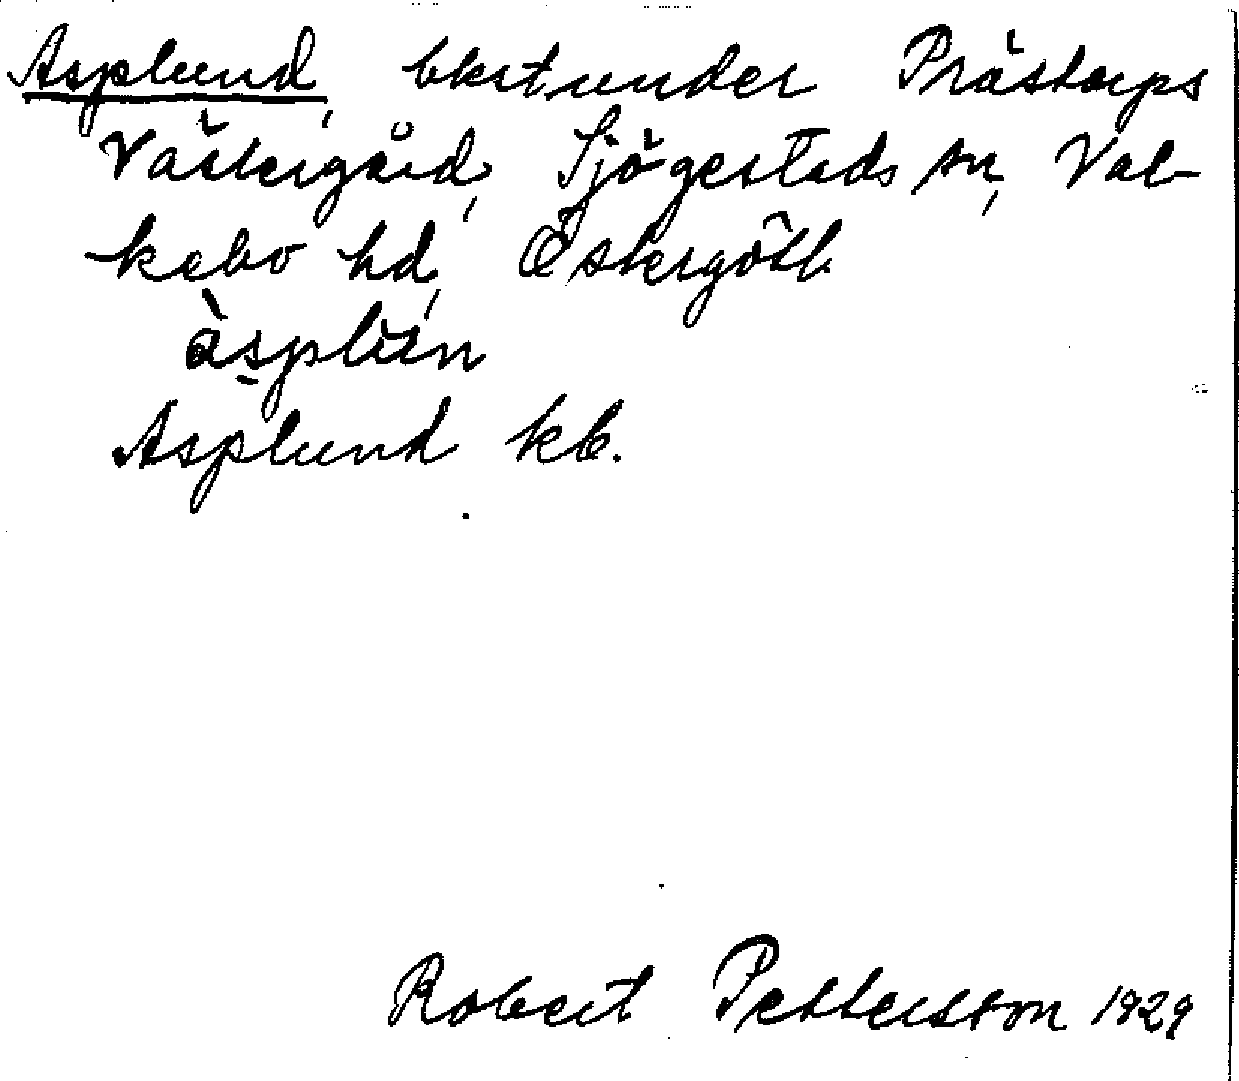 Asplund, bkst under Prästorps
Västergård, Sjögestads sn, Val-
kebo hd, Östergötl.
àsplün
Asplund kb.
Robert Pettersson 1929